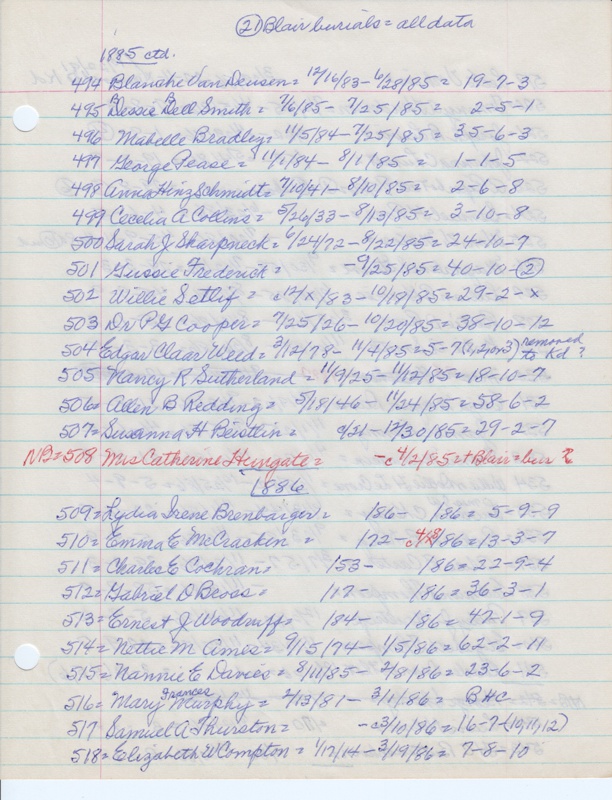 (21) Blair burials = all data
1885 ctd.
494 Blanche Van Deusen = 12/16/83 - 6/28/85 = 19-7-3
495 Dessie Dell Smith = 7/6/85 - 7/25/85 = 2-5-1
496 Mabelle Bradley = 11/5/84 - 7/25/85 = 35-6-3
497 George Pease = 11/1/84 - 8/1/85 = 1-1-5
498 Anna Hinz Schmidt = 7/10/41 - 8/10/85 = 2-6-8
499 Cecelia A Collins = 5/26/33 - 8/13/85 = 3-10-8
500 Sarah J Sharpneck = 6/24/72 - 8/22/85 = 24-10-7
501 Gussie Frederick = - 9/25/85 = 40-10-(2)
502 Willie Setlif = c12/x/83 - 10/18/85 = 29-2-x
503 Dr P G Cooper = 7/25/26 - 10/20/85 = 38-10-12
504 Edgar Claar Weed = 3/12/78 - 11/4/85 = 5-7(1,2,or3) removed to Kd ?
505 Nancy R Sutherland = 11/9/25 - 11/12/85 = 18-10-7
506 = Allen B Redding = 5/18/46 - 11/24/85 = 58-6-2
507 = Susanna H Beistlin = c/21 - 12/30/85 = 29-2-7
NB = 508 Mrs Catherine Hungate = - c4/2/85 = + Blair = bur ?
1886
509 = Lydia Irene Brenbarger = /86 - /86 = 5-9-9
510 = Emma E McCrackin = /72 - c4/8/86 = 13-3-7
511 = Charles E Cochran = /53 - /86 = 22-9-4
512 = Gabriel O Bevss = /17 - /86 = 36-3-1
513 = Ernest J Woodruff = /84 - /86 = 47-1-9
514 = Nettie M Ames = 9/15/74 - 1/5/86 = 62-2-11
515 = Nannie E Davies = 8/11/85 - 2/8/86 = 23-6-2
516 = Mary Frances Murphy = 2/13/81 - 3/1/86 = BHC
517 Samuel A Thurston = - c3/10/86 = 16-7-(10,11,12)
518 = Elizabeth W Compton = 1/17/14 - 3/19/86 = 7-8-10